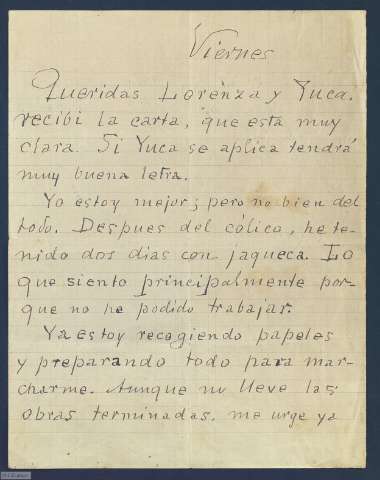 Viernes
Queridas Lorenza y Yuca.
recibi la carta, que esta muy
clara. Si Yuca se aplica tendrá
muy buena letra.
Yo estoy mejor; pero no bien del
todo. Despues del cólico, he te-
nido dos dias con jaqueca. Lo
que siento principalmente por-
que no he podido trabajar.
Ya estoy recogiendo papeles
y preparando todo para mar-
charme. Aunque no lleve las
obras terminadas, me urge ya